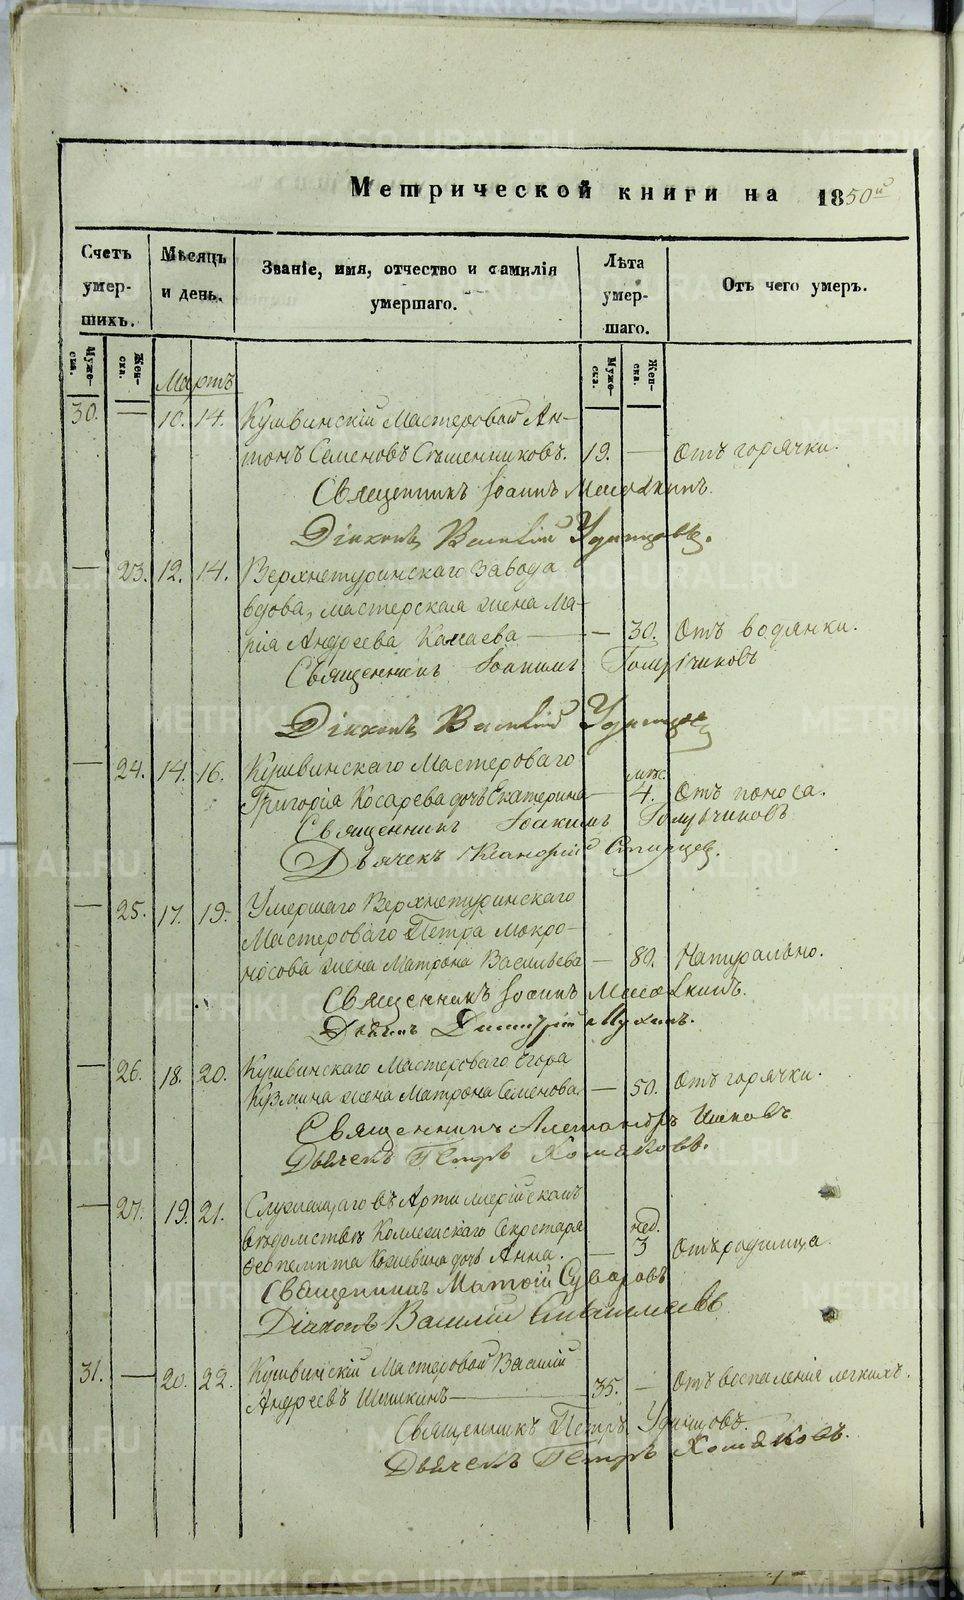 Метрической книги на 1850й
Счетъ умершихъ.
Мѣсяцъ и день.
Званіе, имя, отчество и фамилія умершаго.
Лѣта умершаго.
Отъ чего умеръ.
Муже-ска.
Жен-ска.
Муже-ска.
Жен-ска.
Мартъ
30. — 10. 14. Кушвинскій Мастеровой Ан-
тонъ Семеновъ 19. — Отъ горячки.
Священникъ Іоаннъ
Діаконъ Василій Удинцовъ.
— 23. 12. 14. Верхнетуринскаго Завода
вдова, мастерская жена Ма-
рія Андреева — 30. Отъ водянки.
Священникъ Іоакимъ
Діаконъ Василій
— 24. 14. 16. Кушвинскаго Мастероваго
Григорія Косарева дочь Екатерина — 4. Отъ поноса.
Священникъ Іоакимъ
Дьячекъ
— 25. 17. 19. Умершаго Верхнетуринскаго
Мастероваго Петра Мокро-
носова жена Матрона Васильева — 89. Натурально.
Священникъ Іоаннъ
Димитрій
— 26. 18. 20. Кушвинскаго Мастероваго Егора
Кузмина жена Матрона Семенова — 50. Отъ горячки.
Священникъ Александръ
Дьячекъ Петръ Хомяковъ.
— 27. 19. 21. Служащаго въ Артиллерійскомъ
вѣдомствѣ Коллежскаго Секретаря
нед.
дочь Анна. — 3 Отъ родимца.
Священникъ Матвій Суворовъ
Діаконъ Василій
31. — 20. 22. Кушвинскій Мастеровой Василій
Андреевъ Шишкинъ 35. — Отъ воспаленія легкихъ.
Священникъ Петръ Удинцовъ.
Дьячекъ Петръ Хомяковъ.
METRIKI.GASO-URAL.RU